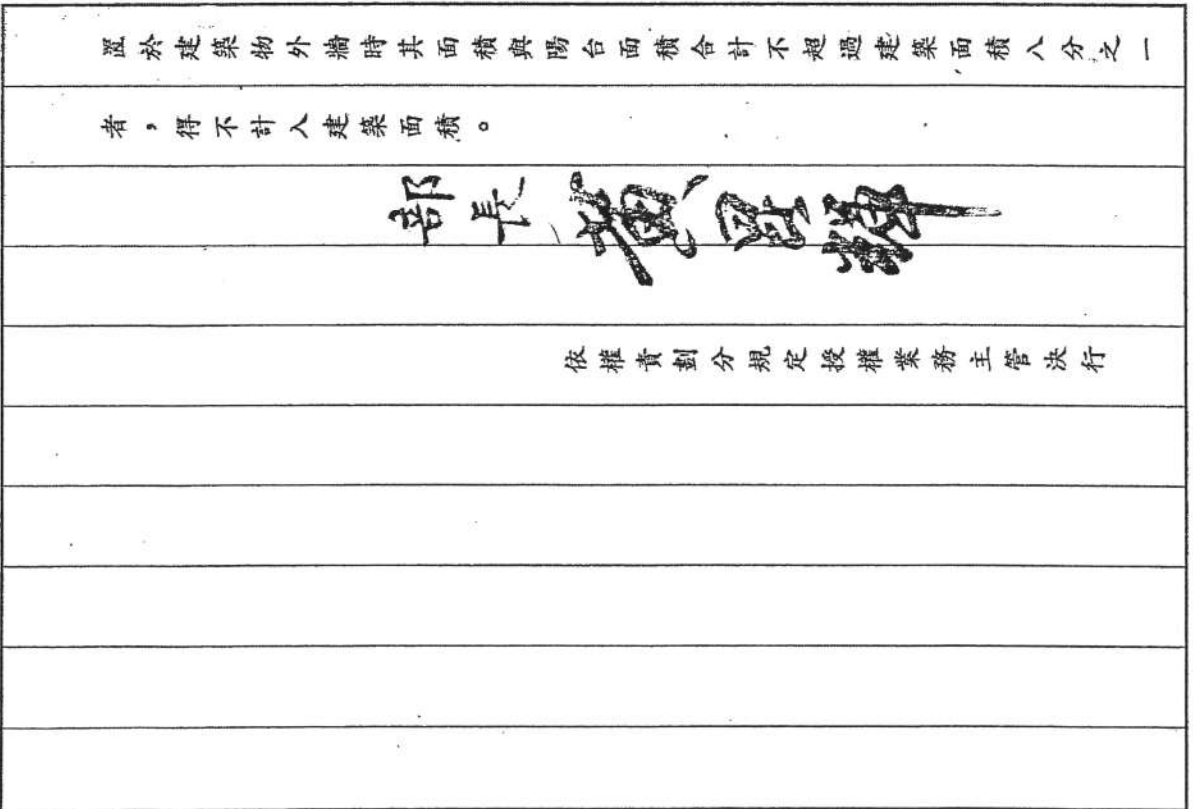 置於建築物外牆時其面積與陽台面積合計不超過建築面積八分之一
者，得不計入建築面積。
部長 黃昆輝
依權責劃分規定授權業務主管決行